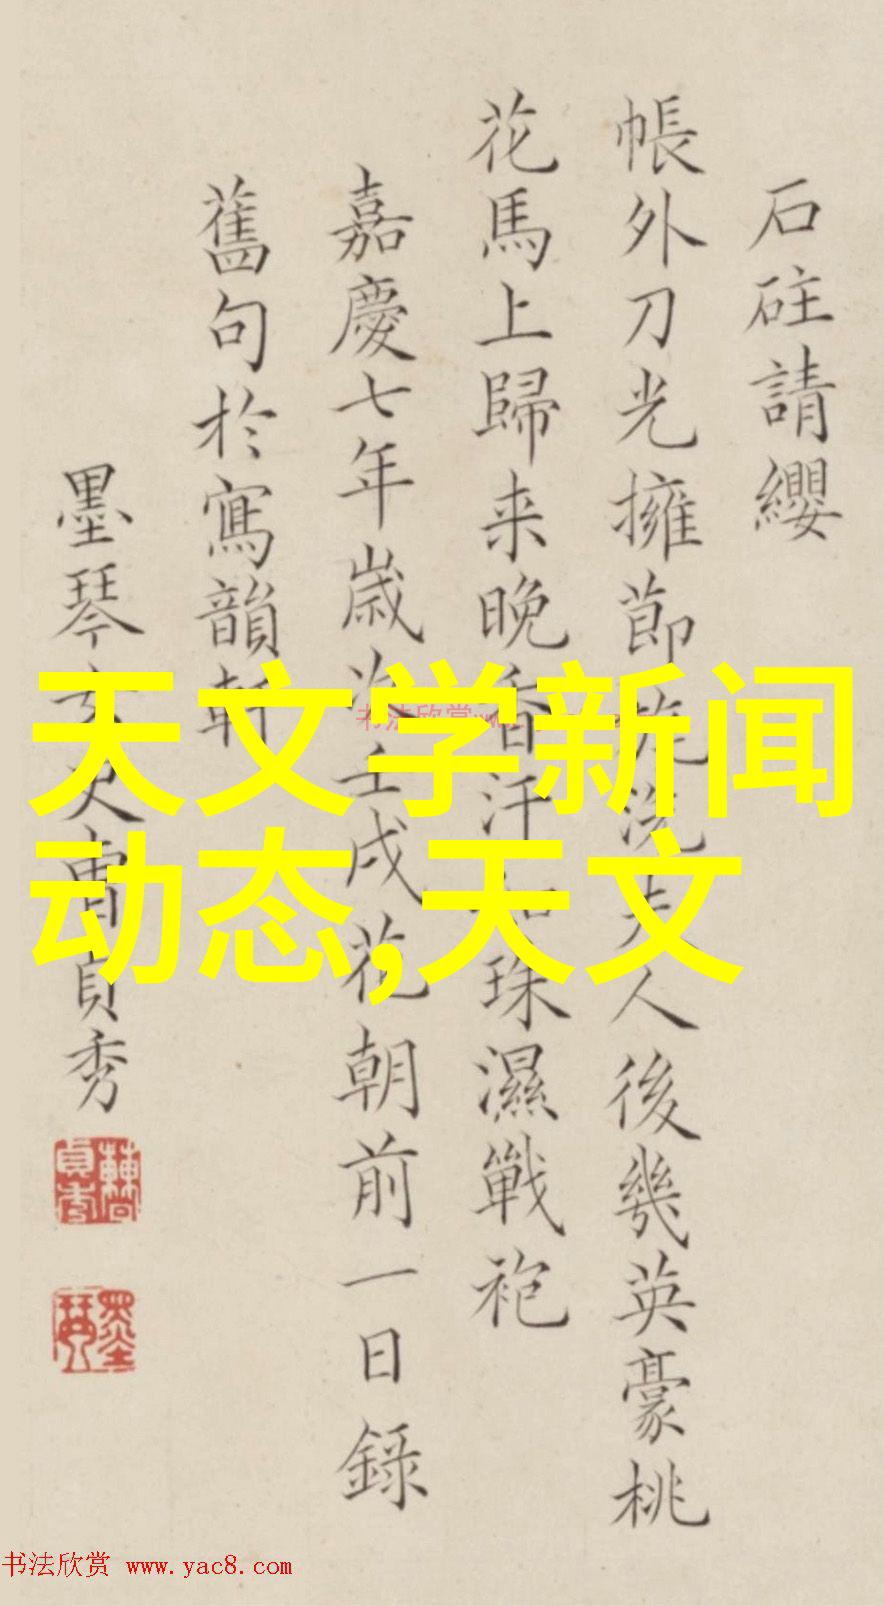 石砫請纓
帳外刀光擁節旄洗夫人後幾英豪桃
花馬上歸来晚香汗如珠濕戰袍
嘉慶七年歲次壬戌花朝前一日錄
舊句於寫韻軒
墨琴女史曹貞秀
天文学新闻
动态,天文
书法欣赏 www.yac8.com